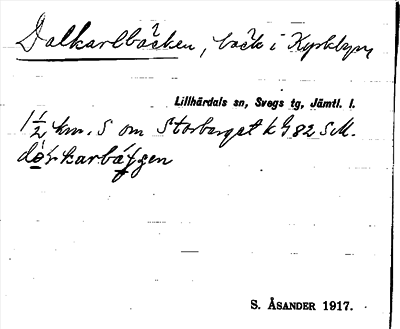 Dalkarlbäcken, bäck i Kyrkbyn
Lillhärdals sn, Svegs tg, Jämtl. l.
1 1/2 km. S om Storberget k h 82 SM.
S. ÅSANDER 1917.